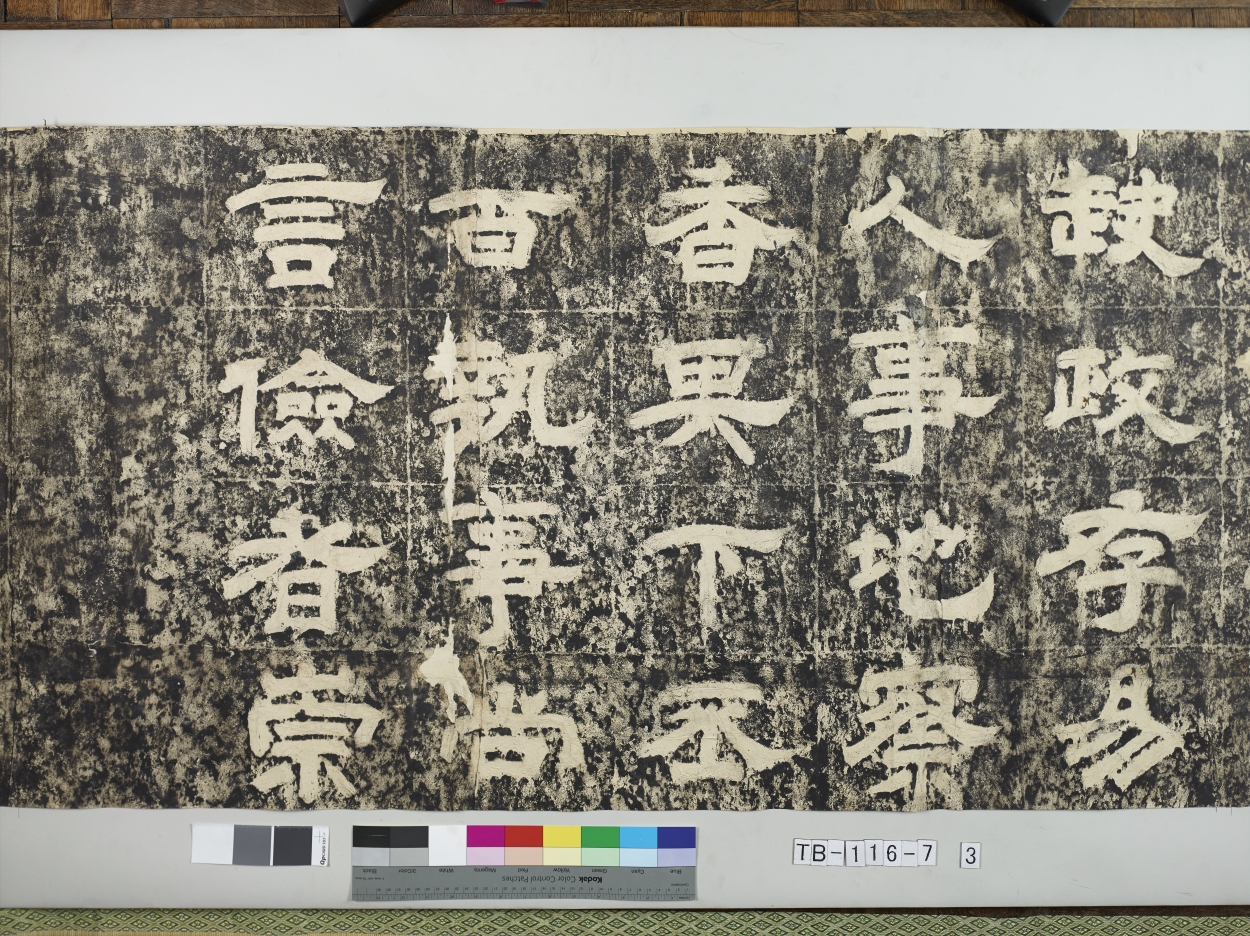 缺政存易
人事地察
香其下丕
百執事尚
言儉者崇
TB-116-7 3
Kodak Color Control Patches
Blue Cyan Green Yellow Red Magenta White 3/Color Black